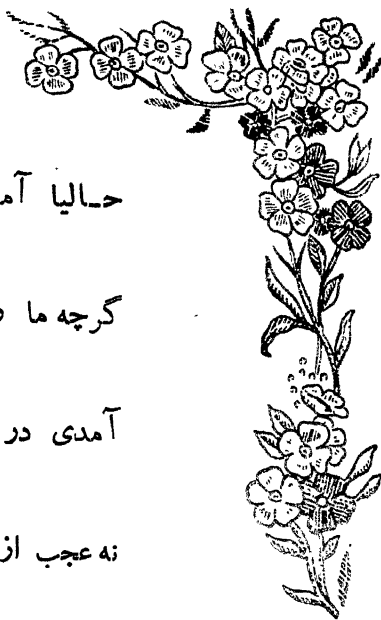 حالیا
گرچه ما
آمدی در
نه عجب از